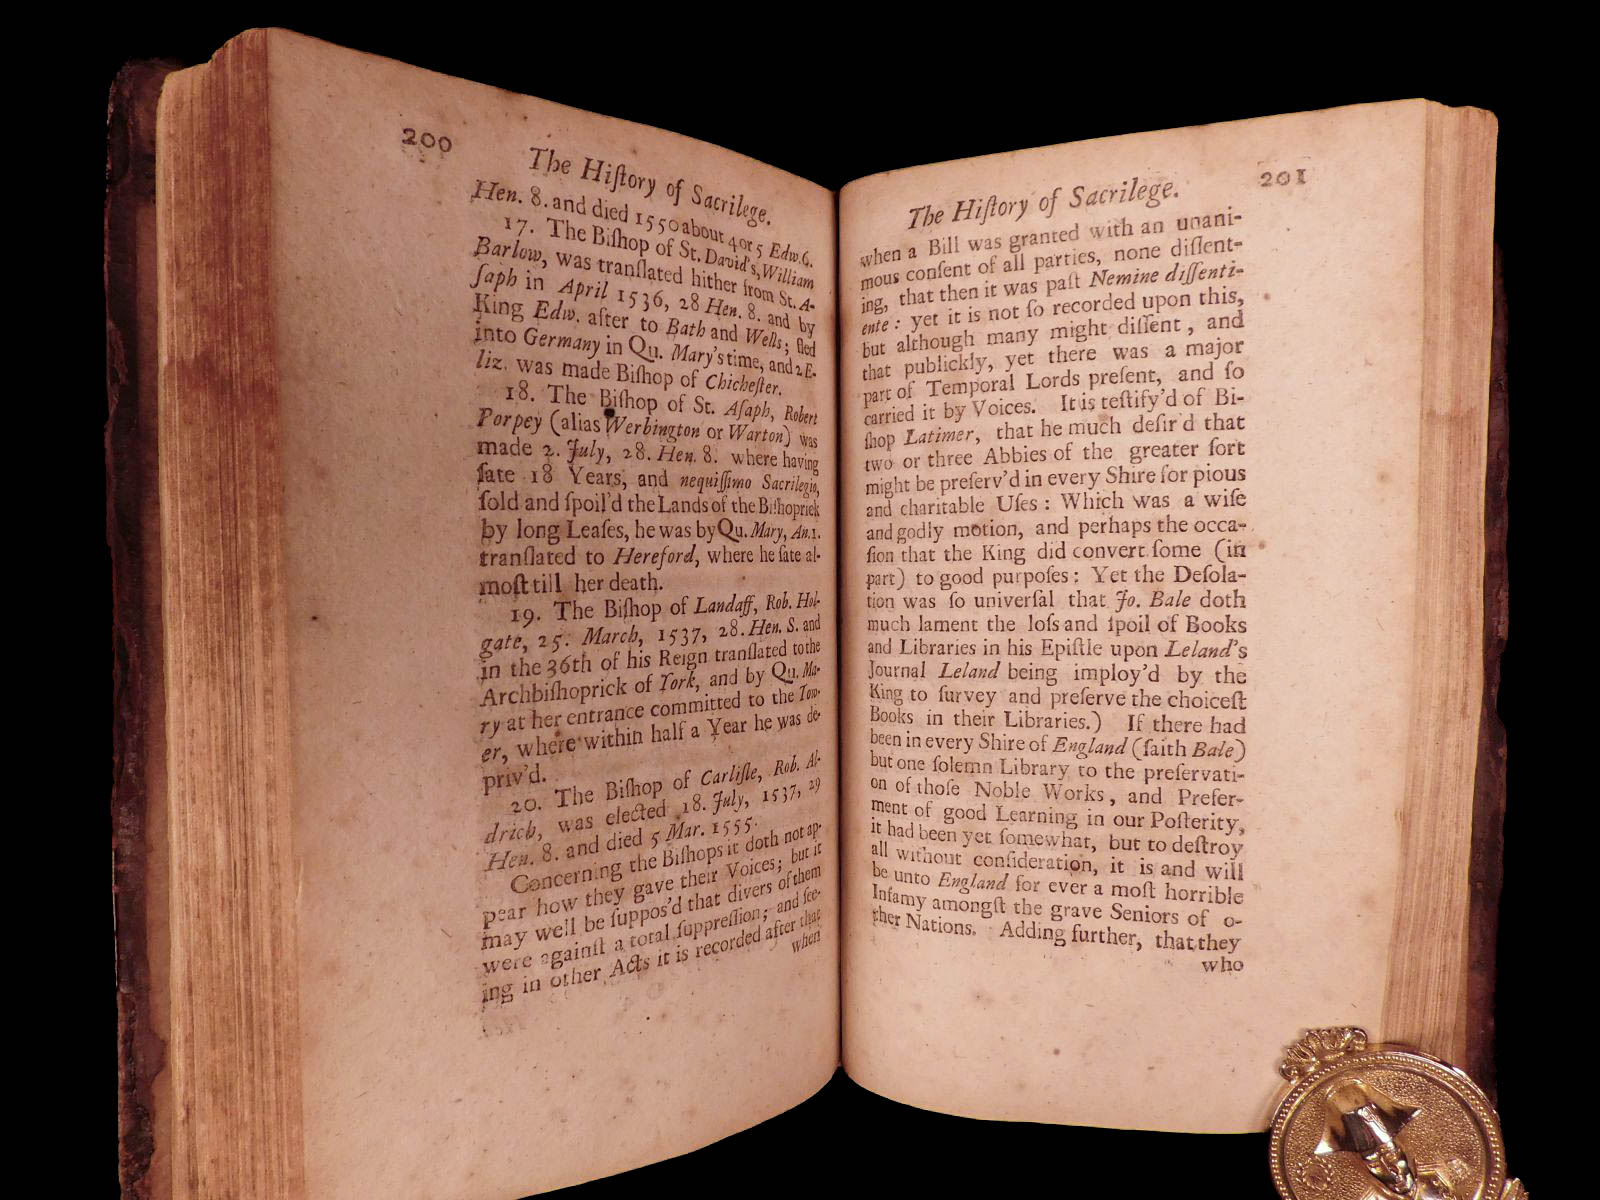 200
The Hiſtory of Sacrilege.
Hen. 8. and died 1550 about 4 or 5 Edw. 6.
17. The Biſhop of St. David's, William
Barlow, was tranſlated hither from St. A-
ſaph in April 1536, 28 Hen. 8. and by
King Edw. after to Bath and Wells; fled
into Germany in Qu. Mary's time, and 2 E-
liz. was made Biſhop of Chicheſter.
18. The Biſhop of St. Aſaph, Robert
Porpey (alias Werbington or Warton) was
made 2. July, 28. Hen. 8. where having
ſate 18 Years, and nequiſſimo Sacrilegio,
ſold and ſpoil'd the Lands of the Biſhoprick
by long Leaſes, he was by Qu. Mary, An. 1.
tranſlated to Hereford, where he ſate al-
moſt till her death.
19. The Biſhop of Landaff, Rob. Hol-
gate, 25. March, 1537, 28. Hen. 8. and
in the 36th of his Reign tranſlated to the
Archbiſhoprick of York, and by Qu. Ma-
ry at her entrance committed to the Tow-
er, where within half a Year he was de-
priv'd.
20. The Biſhop of Carliſle, Rob. Al-
drich, was elected 18. July, 1537, 29
Hen. 8. and died 5 Mar. 1555.
Concerning the Biſhops it doth not ap-
pear how they gave their Voices; but it
may well be ſuppos'd that divers of them
were againſt a total ſuppreſſion; and ſee-
ing in other Acts it is recorded after that
when
201
The Hiſtory of Sacrilege.
when a Bill was granted with an unani-
mous conſent of all parties, none diſſent-
ing, that then it was paſt Nemine diſſenti-
ente: yet it is not ſo recorded upon this,
but although many might diſſent, and
that publickly, yet there was a major
part of Temporal Lords preſent, and ſo
carried it by Voices. It is teſtify'd of Bi-
ſhop Latimer, that he much deſir'd that
two or three Abbies of the greater ſort
might be preſerv'd in every Shire for pious
and charitable Uſes: Which was a wiſe
and godly motion, and perhaps the occa-
ſion that the King did convert ſome (in
part) to good purpoſes: Yet the Deſola-
tion was ſo univerſal that Jo. Bale doth
much lament the loſs and ſpoil of Books
and Libraries in his Epiſtle upon Leland's
Journal Leland being imploy'd by the
King to ſurvey and preſerve the choiceſt
Books in their Libraries.) If there had
been in every Shire of England (ſaith Bale)
but one ſolemn Library to the preſervati-
on of thoſe Noble Works, and Prefer-
ment of good Learning in our Poſterity,
it had been yet ſomewhat, but to deſtroy
all without conſideration, it is and will
be unto England for ever a moſt horrible
Infamy amongſt the grave Seniors of o-
ther Nations. Adding further, that they
who